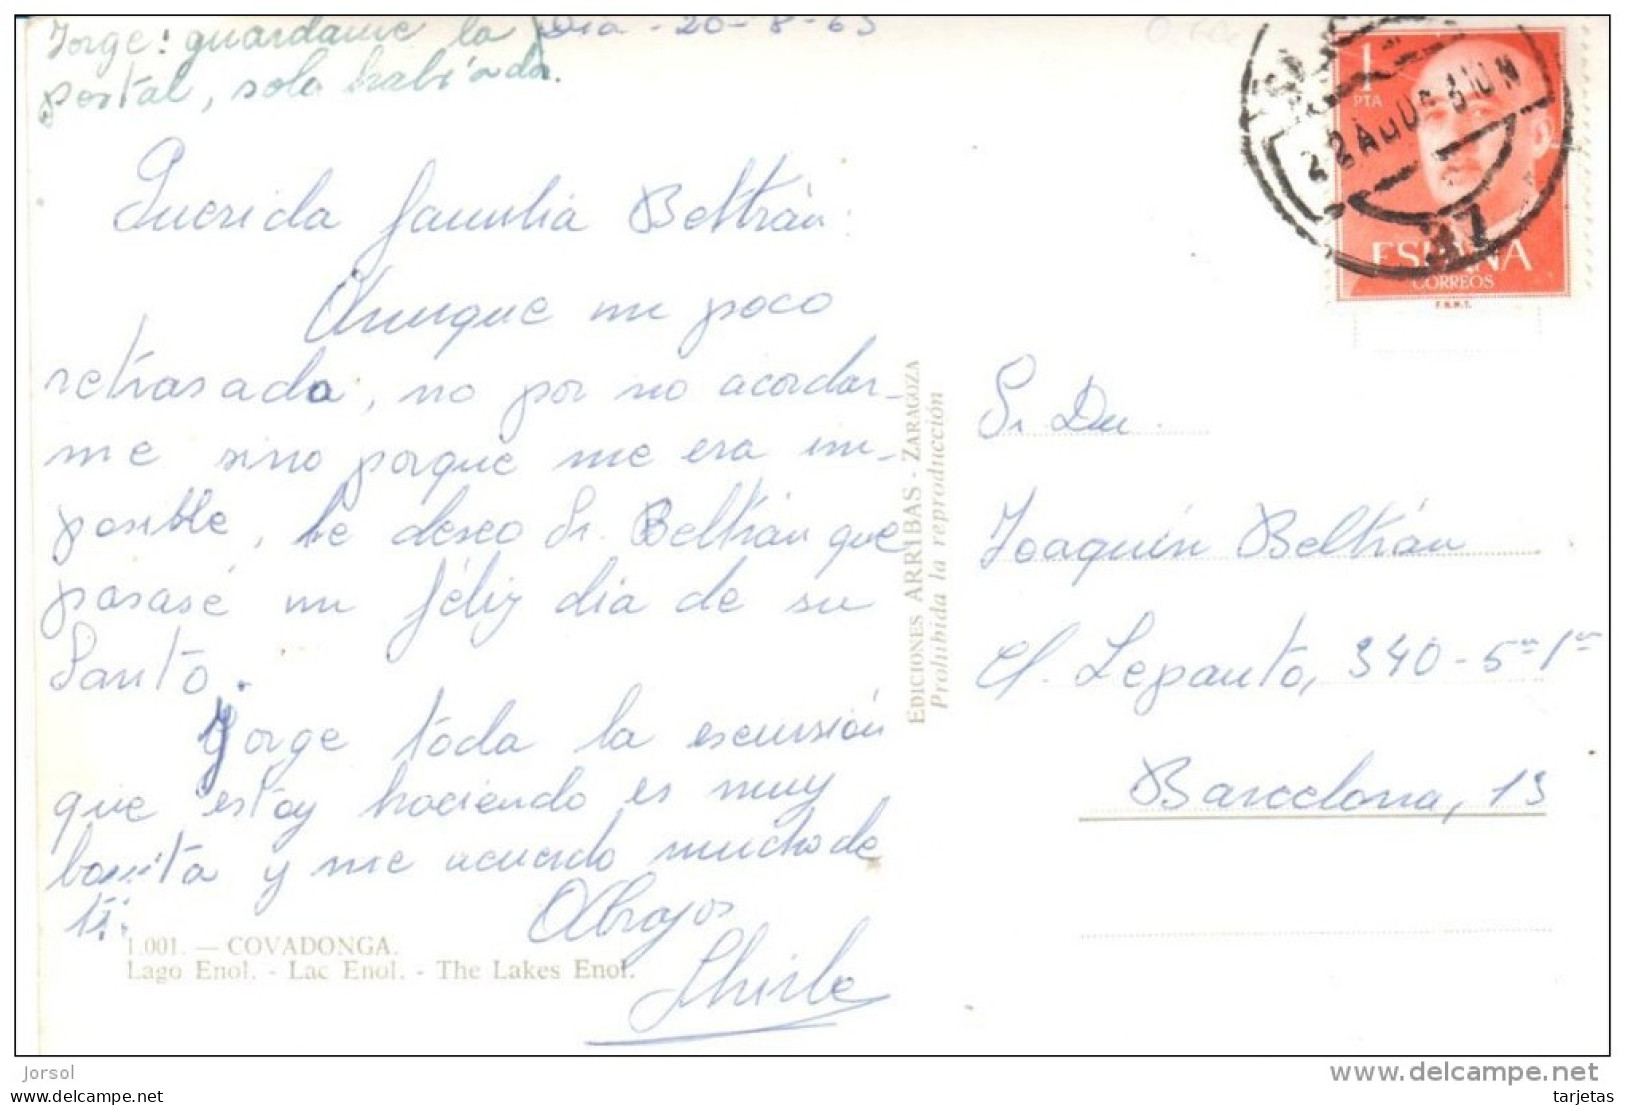 Jorge: guardame la
postal, solo habia dos.
Dia - 20-8-63
Querida familia Beltrán:
Aunque un poco
retrasada, no por no acordar-
me sino porque me era im-
posible, le deseo Sr. Beltrán que
pasase un féliz dia de su
Santo.
Jorge toda la escursión
que estoy haciendo es muy
bonita y me acuerdo mucho de
ti.
Abrazos
1.001. — COVADONGA.
Lago Enol. - Lac Enol. - The Lakes Enol.
EDICIONES ARRIBAS - ZARAGOZA
Prohibida la reproducción
1
PTA
ESPAÑA
CORREOS
F.N.M.T.
22 AGO
Sr. Dn.
Joaquín Beltrán
C/. Lepanto, 340-5º-1ª
Barcelona, 13
Jorsol
www.delcampe.net
tarjetas